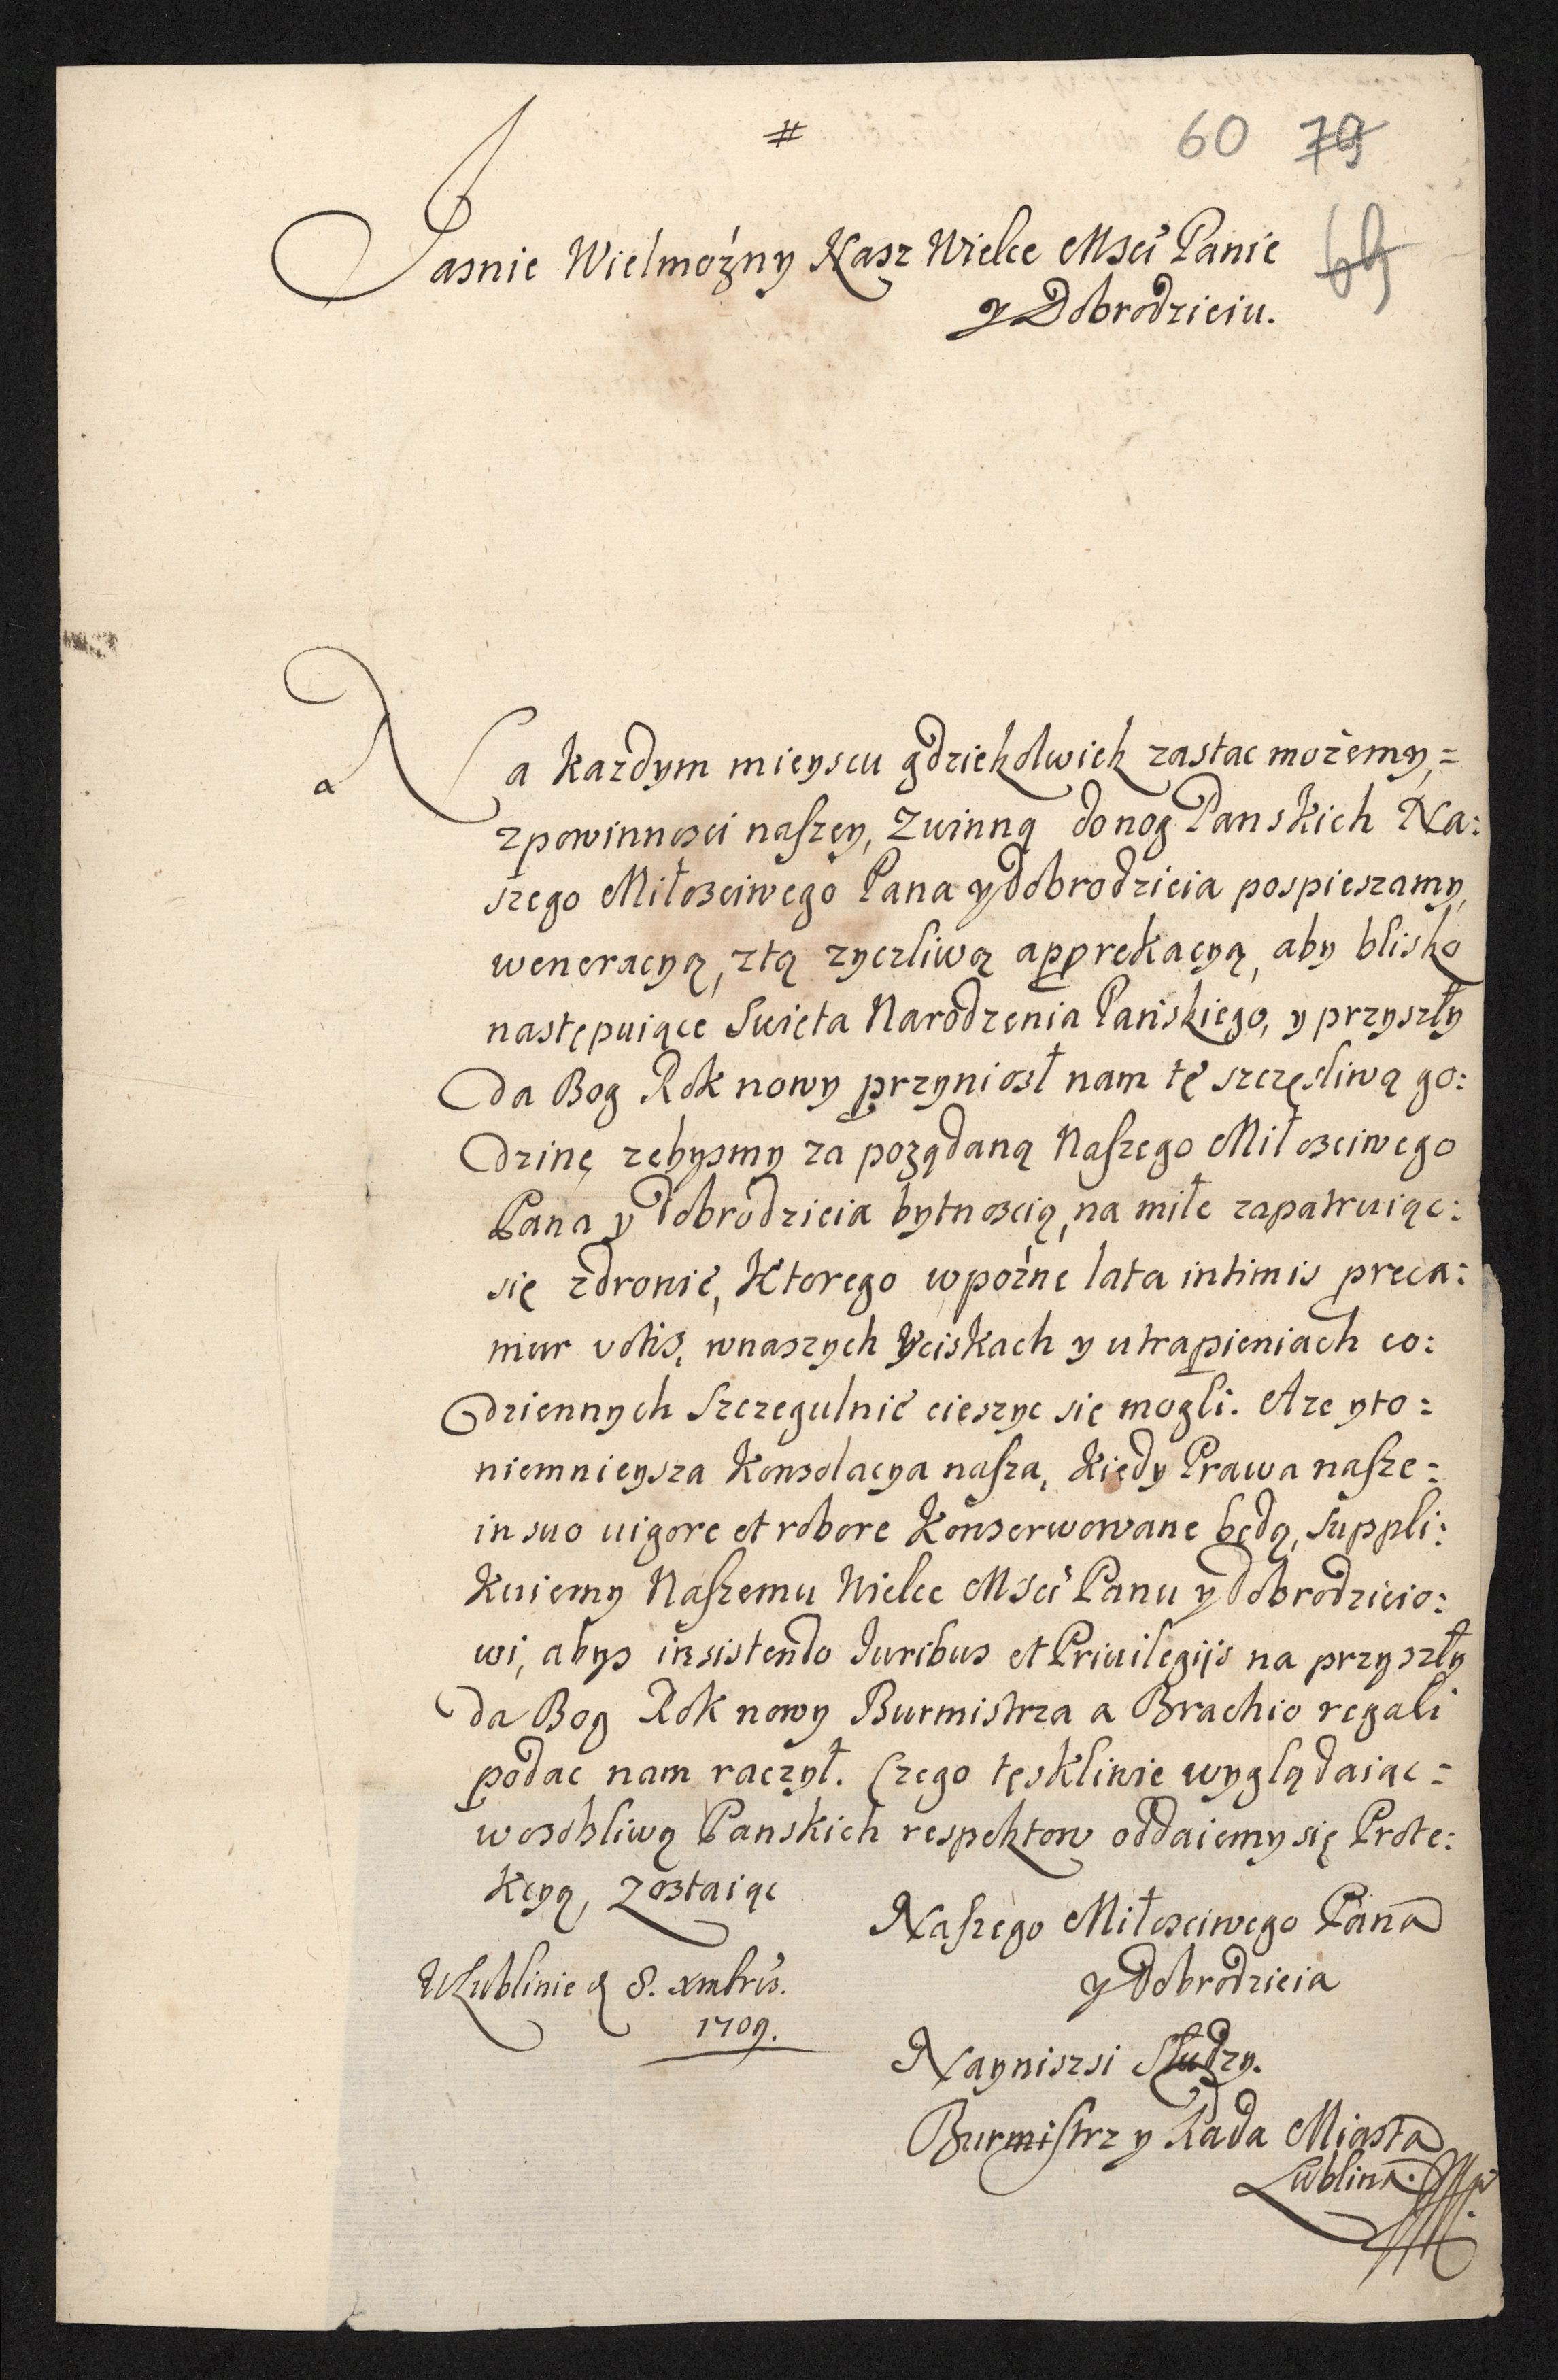 #
60 79
69
Jasnie Wielmożny Nasz Wielce Msci Panie
y Dobrodzieiu.
Na kazdym mieyscu gdziekolwiek zastac możemy,=
z powinnosci naszey, z winną do nog Panskich Na:
szego Miłosciwego Pana y Dobrodzieia pospieszamy,
weneracyą, z tą zyczliwą apprekacyą, aby blisko
następuiące Swięta Narodzenia Pańskiego, y przyszły
da Bog Rok nowy przyniosł nam tę szczęsliwą go:
dzinę zebysmy za pożądaną Naszego Miłosciwego
Pana y Dobrodzieia bytnoscią, na miłe zapatruiąc:
się zdrowie, Ktorego w poźne lata intimis preca:
mur votis, w naszych Uciskach y utrapieniach co:
dziennych szczegulnie cieszyc się mogli. A ze y to:
niemnieysza Konsolacya nasza, Kiedy Prawa nasze:
in suo uigore et robore Konserwowane będą, suppli:
Kuiemy Naszemu Wielce Msci Panu y Dobrodzieio:
wi, abys insistendo Iuribus et Priuilegijs na przyszły
da Bog Rok nowy Burmistrza a Brachio regali
podac nam raczył. Czego tęskliwie wyglądaiąc=
w osobliwą Panskich respektow oddaiemy się Prote:
Kcyą, zostaiąc
Naszego Miłosciwego Pana
y Dobrodzieia
W Lublinie d 8. xmbris.
1709.
Nayniszsi Słudzy.
Burmistrz y Rada Miasta
Lublina.